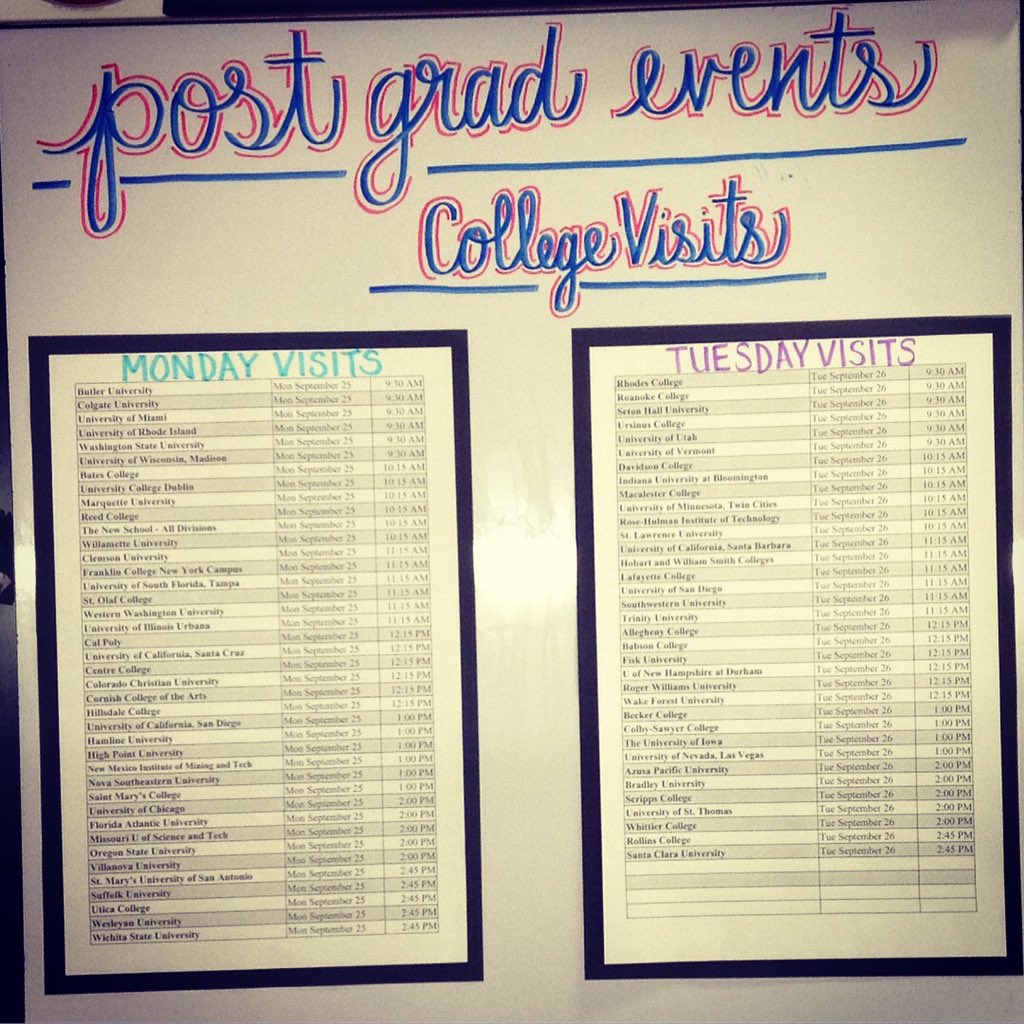 post grad events
College Visits
MONDAY VISITS
Butler University Mon September 25 9:30 AM
Colgate University Mon September 25 9:30 AM
University of Miami Mon September 25 9:30 AM
University of Rhode Island Mon September 25 9:30 AM
Washington State University Mon September 25 9:30 AM
University of Wisconsin, Madison Mon September 25 9:30 AM
Bates College Mon September 25 10:15 AM
University College Dublin Mon September 25 10:15 AM
Marquette University Mon September 25 10:15 AM
Reed College Mon September 25 10:15 AM
The New School - All Divisions Mon September 25 10:15 AM
Willamette University Mon September 25 10:15 AM
Clemson University Mon September 25 11:15 AM
Franklin College New York Campus Mon September 25 11:15 AM
University of South Florida, Tampa Mon September 25 11:15 AM
St. Olaf College Mon September 25 11:15 AM
Western Washington University Mon September 25 11:15 AM
University of Illinois Urbana Mon September 25 11:15 AM
Cal Poly Mon September 25 12:15 PM
University of California, Santa Cruz Mon September 25 12:15 PM
Centre College Mon September 25 12:15 PM
Colorado Christian University Mon September 25 12:15 PM
Cornish College of the Arts Mon September 25 12:15 PM
Hillsdale College Mon September 25 12:15 PM
University of California, San Diego Mon September 25 1:00 PM
Hamline University Mon September 25 1:00 PM
High Point University Mon September 25 1:00 PM
New Mexico Institute of Mining and Tech Mon September 25 1:00 PM
Nova Southeastern University Mon September 25 1:00 PM
Saint Mary's College Mon September 25 1:00 PM
University of Chicago Mon September 25 2:00 PM
Florida Atlantic University Mon September 25 2:00 PM
Missouri U of Science and Tech Mon September 25 2:00 PM
Oregon State University Mon September 25 2:00 PM
Villanova University Mon September 25 2:00 PM
St. Mary's University of San Antonio Mon September 25 2:45 PM
Suffolk University Mon September 25 2:45 PM
Utica College Mon September 25 2:45 PM
Wesleyan University Mon September 25 2:45 PM
Wichita State University Mon September 25 2:45 PM
TUESDAY VISITS
Rhodes College Tue September 26 9:30 AM
Roanoke College Tue September 26 9:30 AM
Seton Hall University Tue September 26 9:30 AM
Ursinus College Tue September 26 9:30 AM
University of Utah Tue September 26 9:30 AM
University of Vermont Tue September 26 9:30 AM
Davidson College Tue September 26 10:15 AM
Indiana University at Bloomington Tue September 26 10:15 AM
Macalester College Tue September 26 10:15 AM
University of Minnesota, Twin Cities Tue September 26 10:15 AM
Rose-Hulman Institute of Technology Tue September 26 10:15 AM
St. Lawrence University Tue September 26 10:15 AM
University of California, Santa Barbara Tue September 26 11:15 AM
Hobart and William Smith Colleges Tue September 26 11:15 AM
Lafayette College Tue September 26 11:15 AM
University of San Diego Tue September 26 11:15 AM
Southwestern University Tue September 26 11:15 AM
Trinity University Tue September 26 11:15 AM
Allegheny College Tue September 26 12:15 PM
Babson College Tue September 26 12:15 PM
Fisk University Tue September 26 12:15 PM
U of New Hampshire at Durham Tue September 26 12:15 PM
Roger Williams University Tue September 26 12:15 PM
Wake Forest University Tue September 26 12:15 PM
Becker College Tue September 26 1:00 PM
Colby-Sawyer College Tue September 26 1:00 PM
The University of Iowa Tue September 26 1:00 PM
University of Nevada, Las Vegas Tue September 26 1:00 PM
Azusa Pacific University Tue September 26 2:00 PM
Bradley University Tue September 26 2:00 PM
Scripps College Tue September 26 2:00 PM
University of St. Thomas Tue September 26 2:00 PM
Whittier College Tue September 26 2:00 PM
Rollins College Tue September 26 2:45 PM
Santa Clara University Tue September 26 2:45 PM